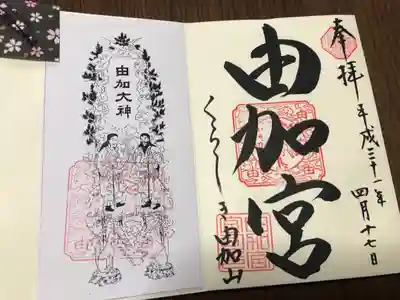 奉拝
平成三十一年四月十七日
由加宮
くらしき由加山
由加大神